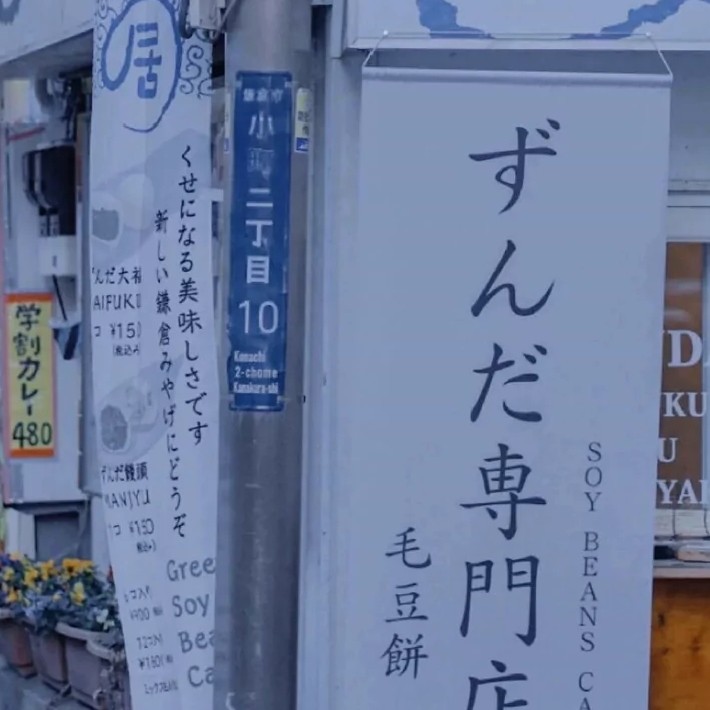 居
くせになる美味しさです
新しい鎌倉みやげにどうぞ
んだ大福
AIFUKU
コ ¥15
(税込み
ずんだ饅頭
MANJYU
コ ¥150
税込み)
Gree
Soy
Bea
Ca
学割カレー
480
鎌倉市
小町二丁目
10
Komachi
2-chome
Kamakura-shi
ずんだ専門店
毛豆餅
SOY BEANS CA
DA
KU
U
YA